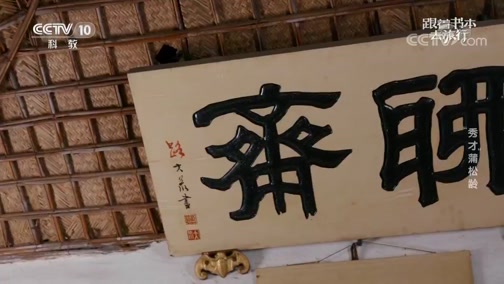 CCTV 10
科教
跟着书本
去旅行
CCTV.com
秀才蒲松龄
聊斋
路大荒書